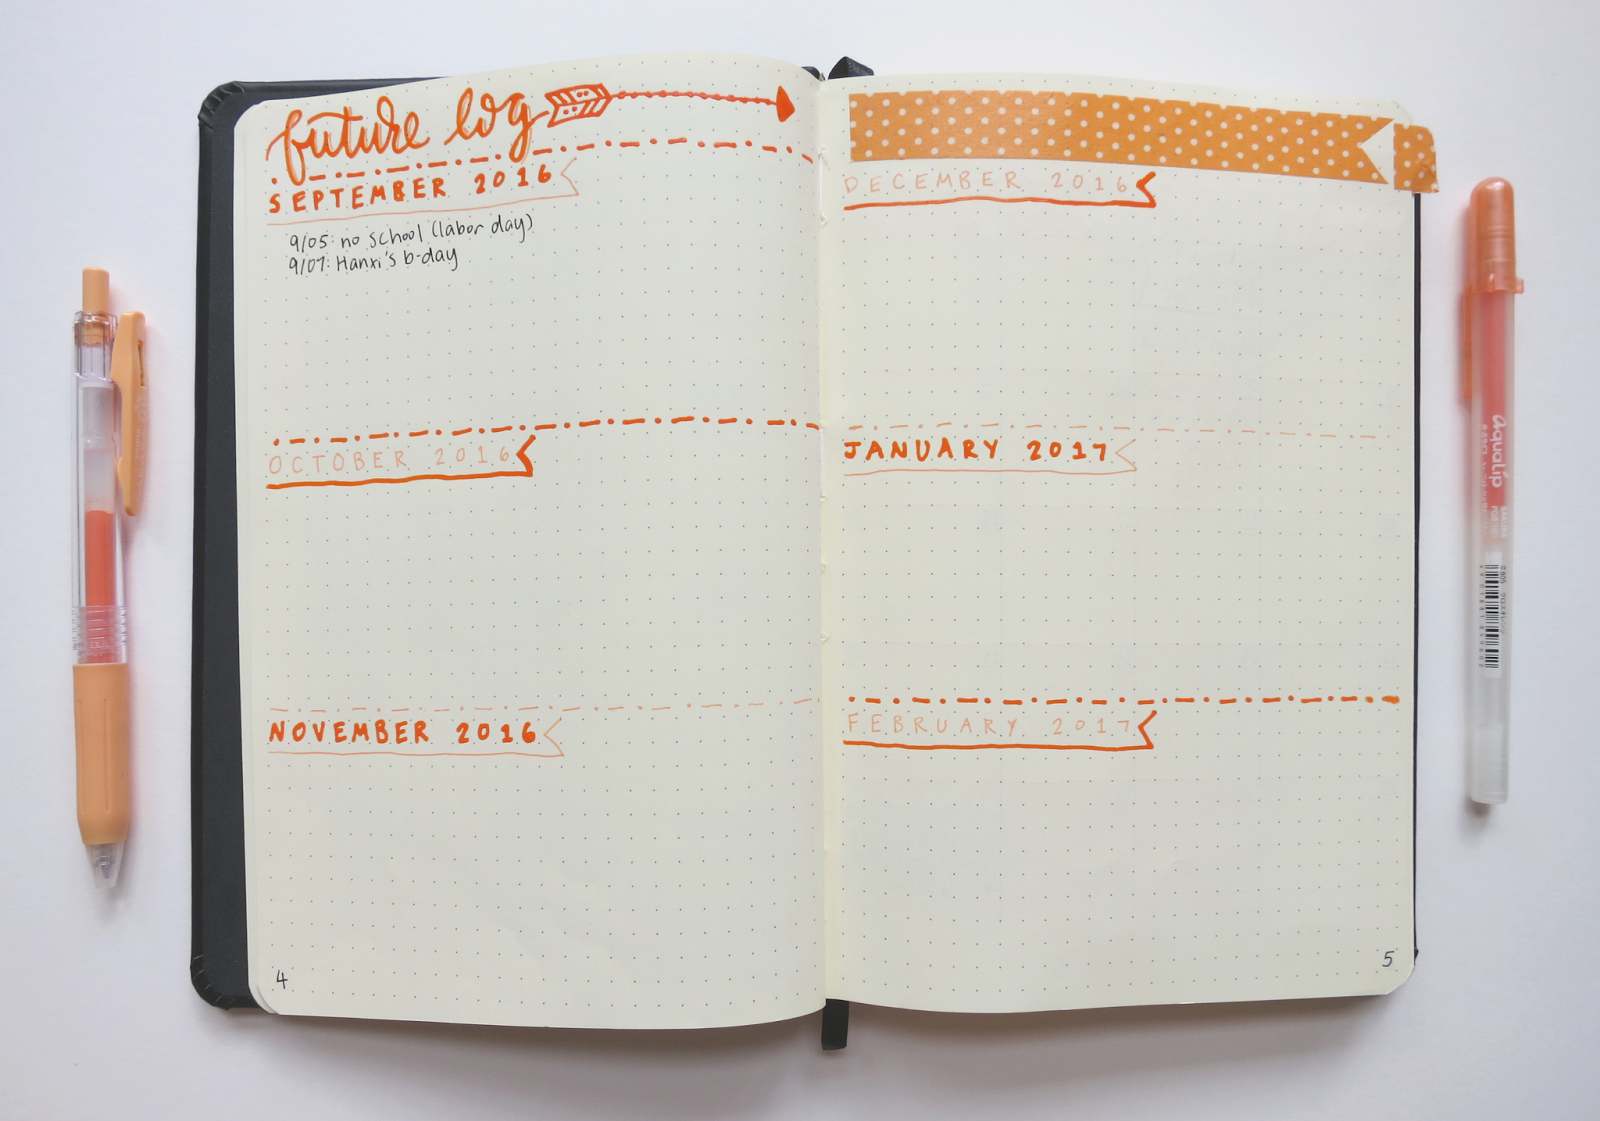 future log
SEPTEMBER 2016
9/05: no school (labor day)
9/07: Hanxi's b-day
OCTOBER 2016
NOVEMBER 2016
4
DECEMBER 2016
JANUARY 2017
FEBRUARY 2017
5
aqualip